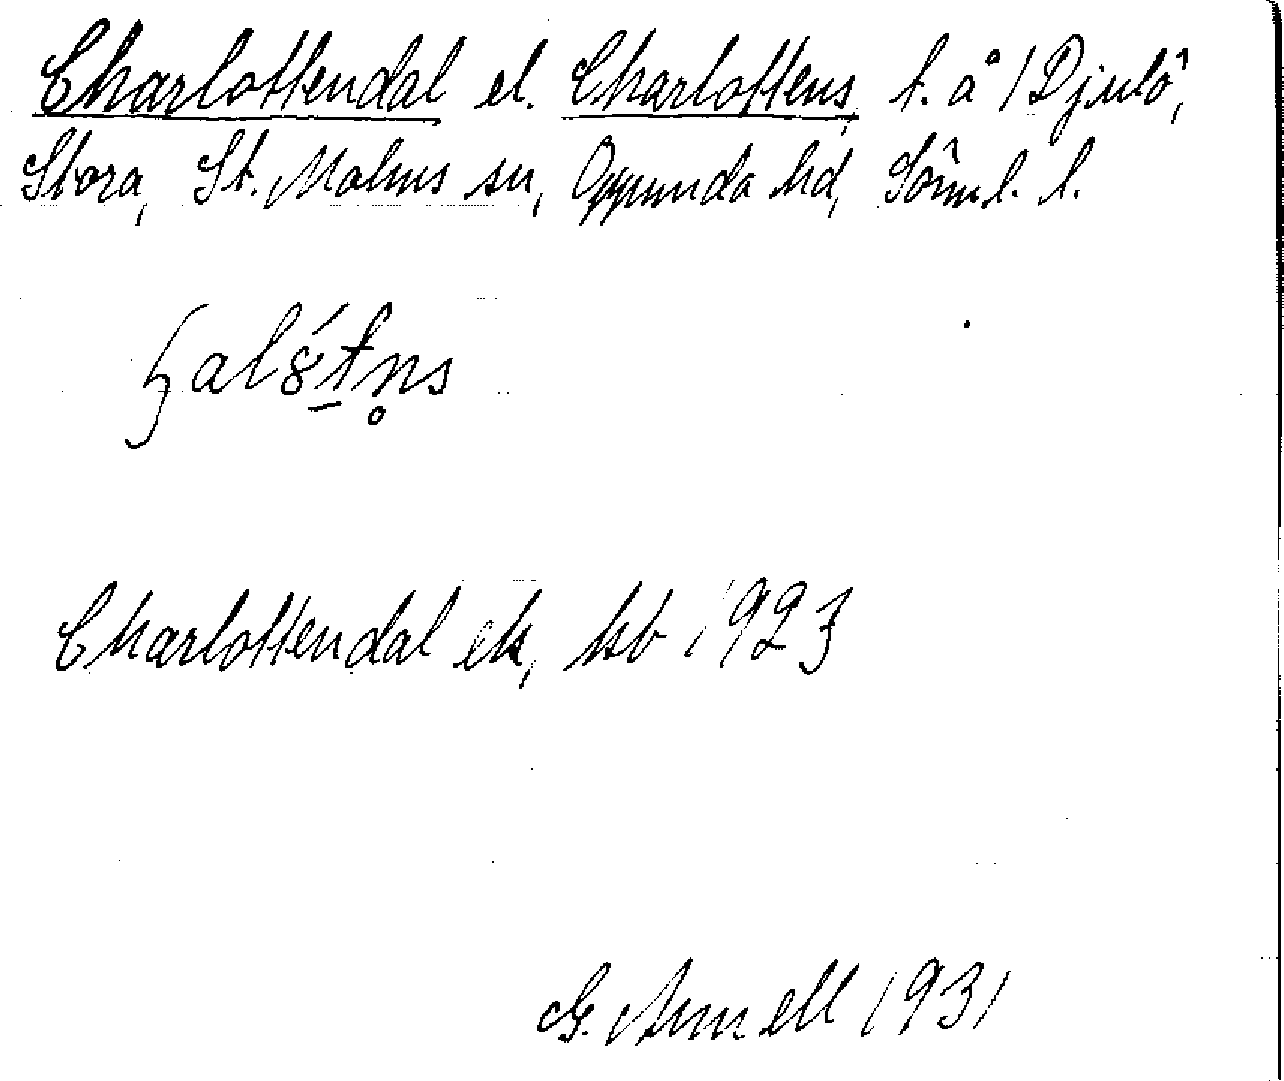 Charlottendal el. Charlottens, t. å /Djulö,
Stora, St. Malms sn, Oppunda hd, Sörml. l.
Charlottendal ek, kb 1923
G. Arnell 1931